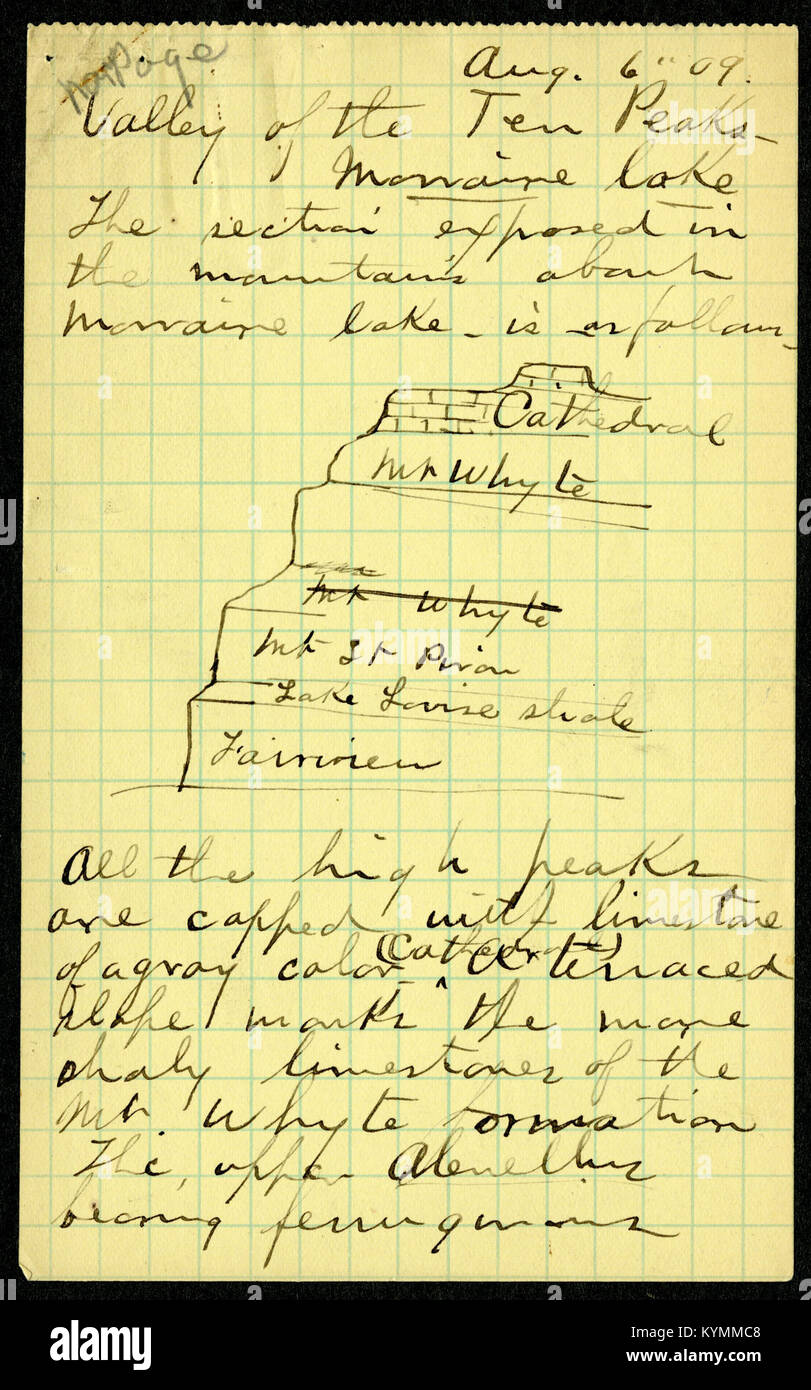 No Page
Aug. 6" 09.
Valley of the Ten Peaks -
Morraine lake
The section exposed in
the mountains about
Morraine lake - is as follows -
Cathedral
Mt Whyte
Mt Whyte
Mt St Piran
Lake Louise shale
Fairview
All the high peaks
are capped with limestone
of a gray color (Cathedral) A terraced
slope marks the more
shaly limestones of the
Mt. Whyte formation
The upper Olenellus
bearing ferruginous
alamy
alamy
alamy
Image ID: KYMMC8
www.alamy.com